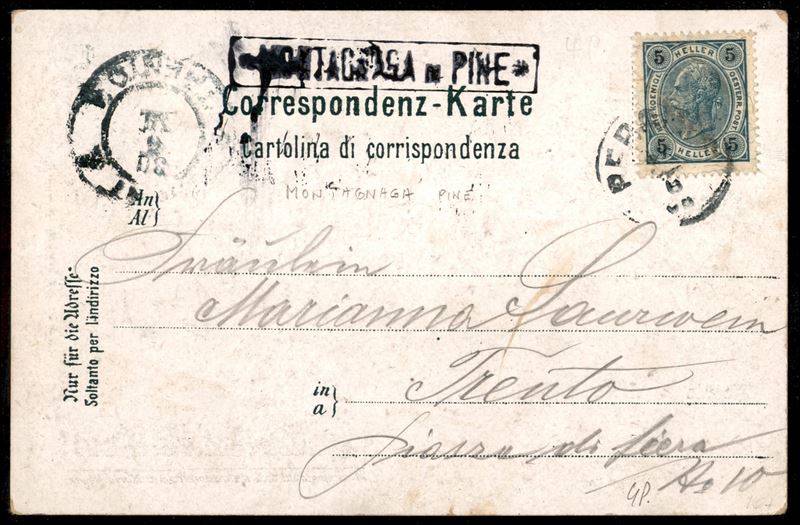 MONTAGNAGA IN PINE
4P.
5 HELLER 5
OESTERR. POST
5 HELLER 5
PER
Correspondenz-Karte
Cartolina di corrispondenza
MONTAGNAGA PINE
An
Al
Fräulein
Marianna Laurwein
in
a
Trento
Piazza di fiera
No 10
4P.
Nur für die Adresse.
Soltanto per l'andirizzo